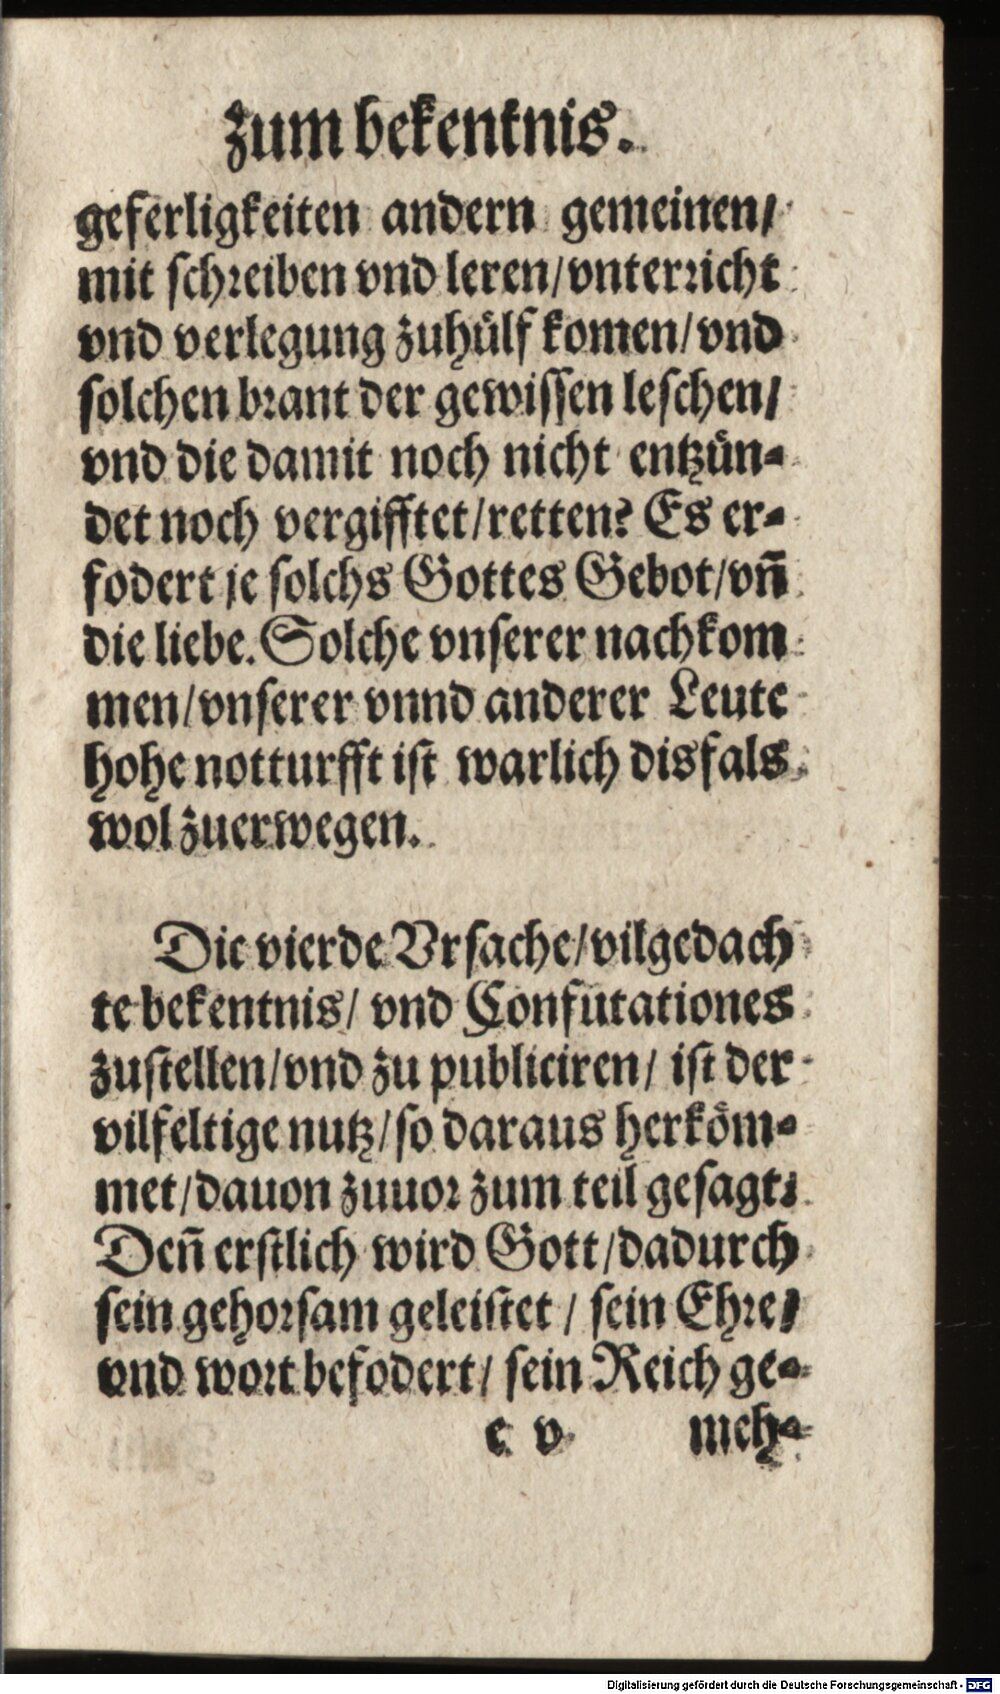 zum bekentnis.
geferligkeiten andern gemeinen/
mit schreiben vnd leren/vnterricht
vnd verlegung zuhülf komen/vnd
solchen brant der gewissen leschen/
vnd die damit noch nicht entzün-
det noch vergifftet/retten? Es er-
fodert je solchs Gottes Gebot/vn̄
die liebe. Solche vnserer nachkom
men/vnserer vnnd anderer Leute
hohe notturfft ist warlich disfals
wol zuerwegen.
Die vierde Vrsache/vilgedach
te bekentnis/ vnd Confutationes
zustellen/vnd zu publiciren/ ist der
vilfeltige nutz/so daraus herköm-
met/dauon zuuor zum teil gesagt:
Den̄ erstlich wird Gott/dadurch
sein gehorsam geleistet / sein Ehre/
vnd wort befodert/ sein Reich ge-
c v meh-
Digitalisierung gefördert durch die Deutsche Forschungsgemeinschaft - DFG